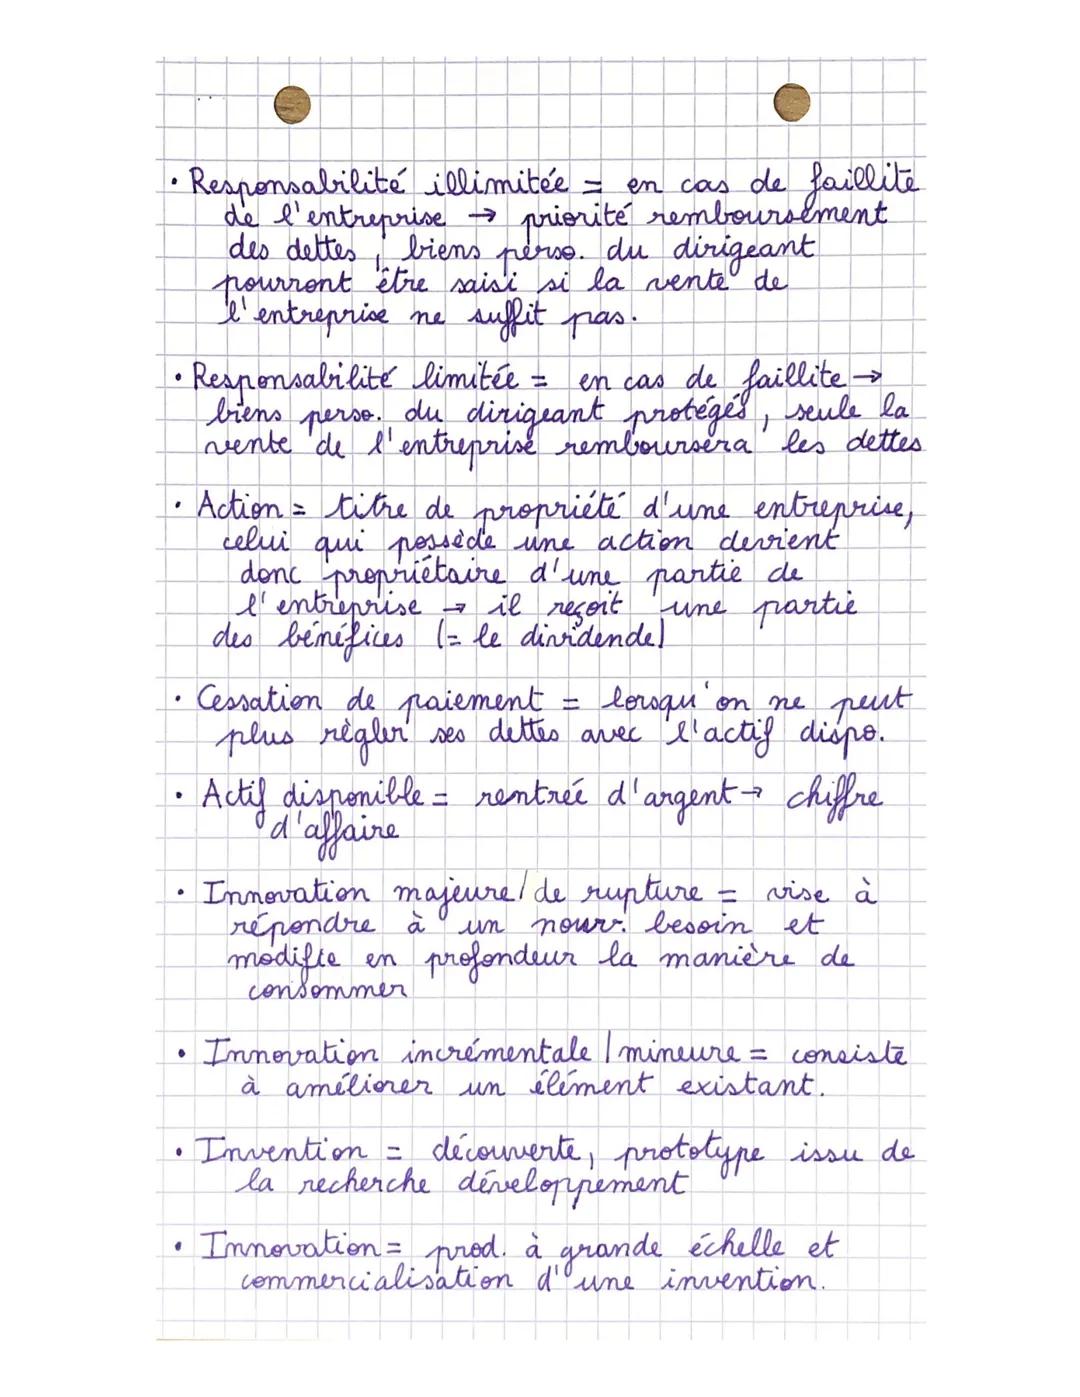 • Responsabilité illimitée = en cas de faillite
de l'entreprise → priorité remboursement
des dettes, biens perso. du dirigeant
pourront être saisi si la vente de
l'entreprise ne suffit pas.
• Responsabilité limitée = en cas de faillite →
biens perso. du dirigeant protégés, seule la
vente de l'entreprise remboursera les dettes
• Action = titre de propriété d'une entreprise,
celui qui possède une action devient
donc propriétaire d'une partie de
l'entreprise → il reçoit une partie
des bénéfices (= le dividende)
• Cessation de paiement = lorsqu'on ne peut
plus règler ses dettes avec l'actif dispo.
• Actif disponible = rentrée d'argent → chiffre
d'affaire
• Innovation majeure / de rupture = vise à
répondre à un nouv. besoin et
modifie en profondeur la manière de
consommer
• Innovation incrémentale / mineure = consiste
à améliorer un élément existant.
• Invention = découverte, prototype issu de
la recherche développement
• Innovation = prod. à grande échelle et
commercialisation d'une invention.